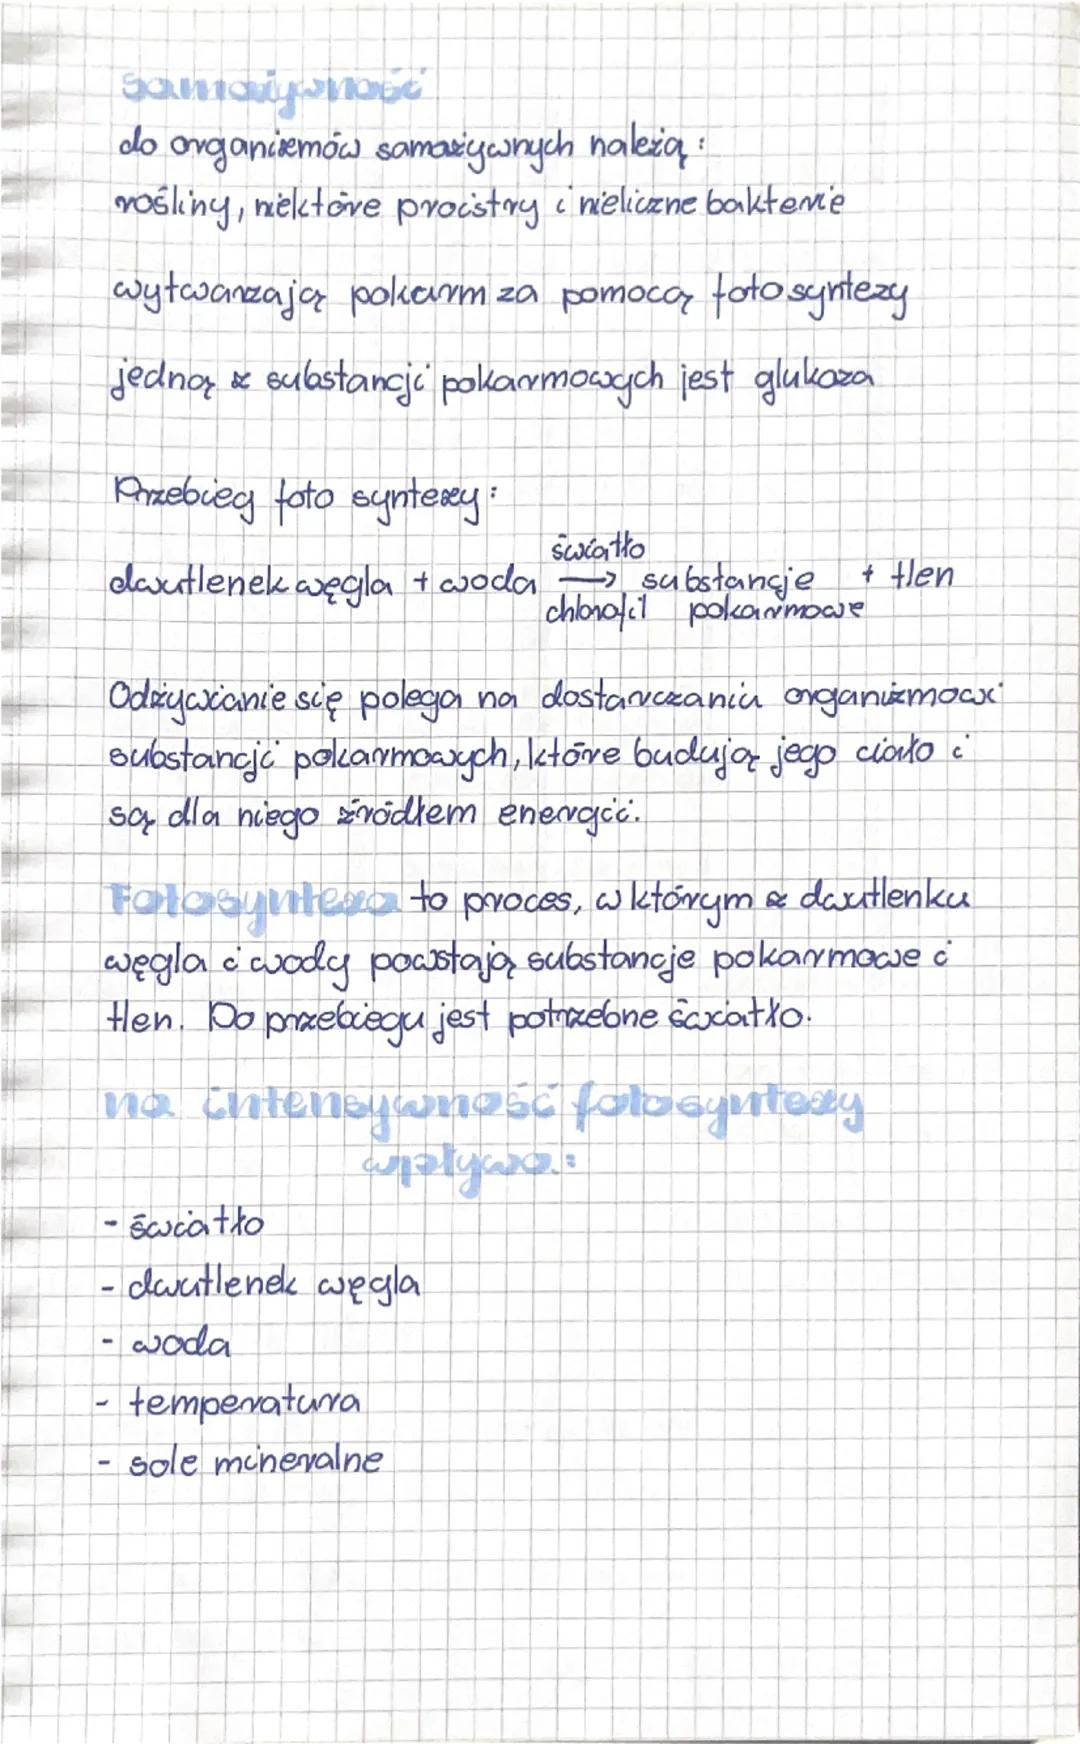 samożywność
do organizmów samożywnych należą:
rośliny, niektóre procistry i nieliczne bakterie
wytwarzają pokarm za pomocą fotosyntezy
jedną z substancji pokarmowych jest glukoza
Przebieg foto syntezy:
światło
dwutlenek węgla + woda → substancje + tlen
chlorofil pokarmowe
Odżywianie się polega na dostarczaniu organizmowi
substancji pokarmowych, które budują jego ciało i
są dla niego źródłem energii.
Fotosynteza to proces, w którym z dwutlenku
węgla i wody powstają substancje pokarmowe i
tlen. Do przebiegu jest potrzebne światło.
na intensywność fotosyntezy
wpływa:
- światło
- dwutlenek węgla
- woda
- temperatura
- sole mineralne